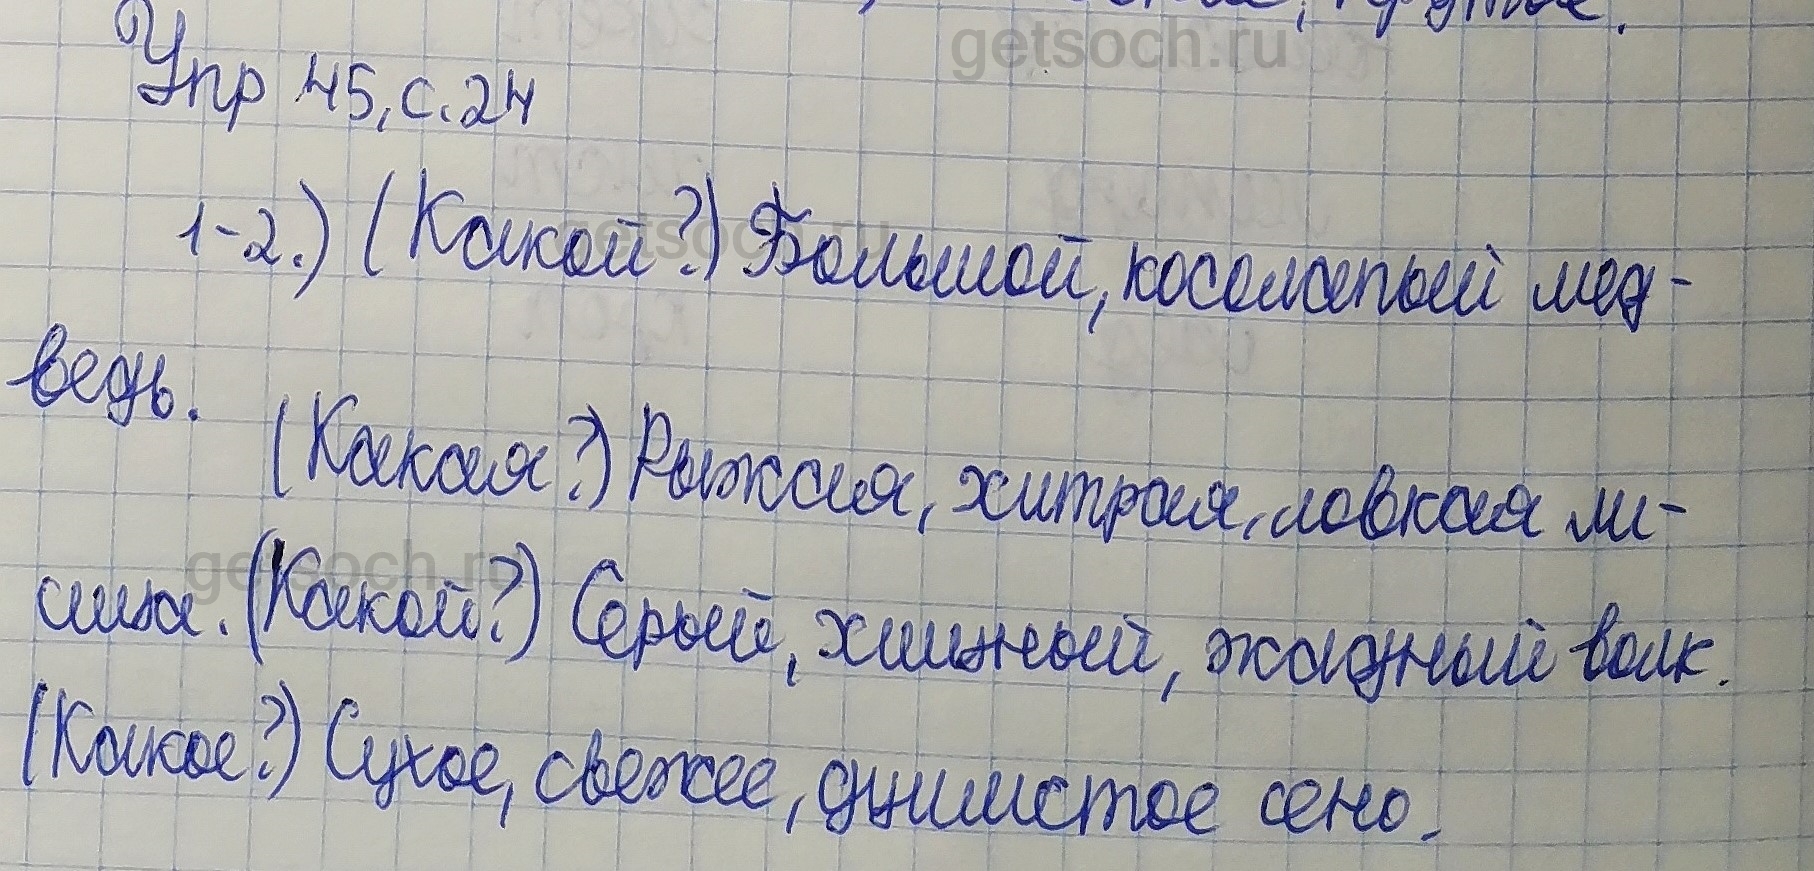 getsoch.ru
Упр 45, с. 24
1-2.) (Какой?) Большой, косолапый мед-
getsoch.ru
ведь.
(Какая?) Рыжая, хитрая, ловкая ли-
getsoch.ru
сица. (Какой?) Серый, хищный, жадный волк.
(Какое?) Сухое, свежее, душистое сено.